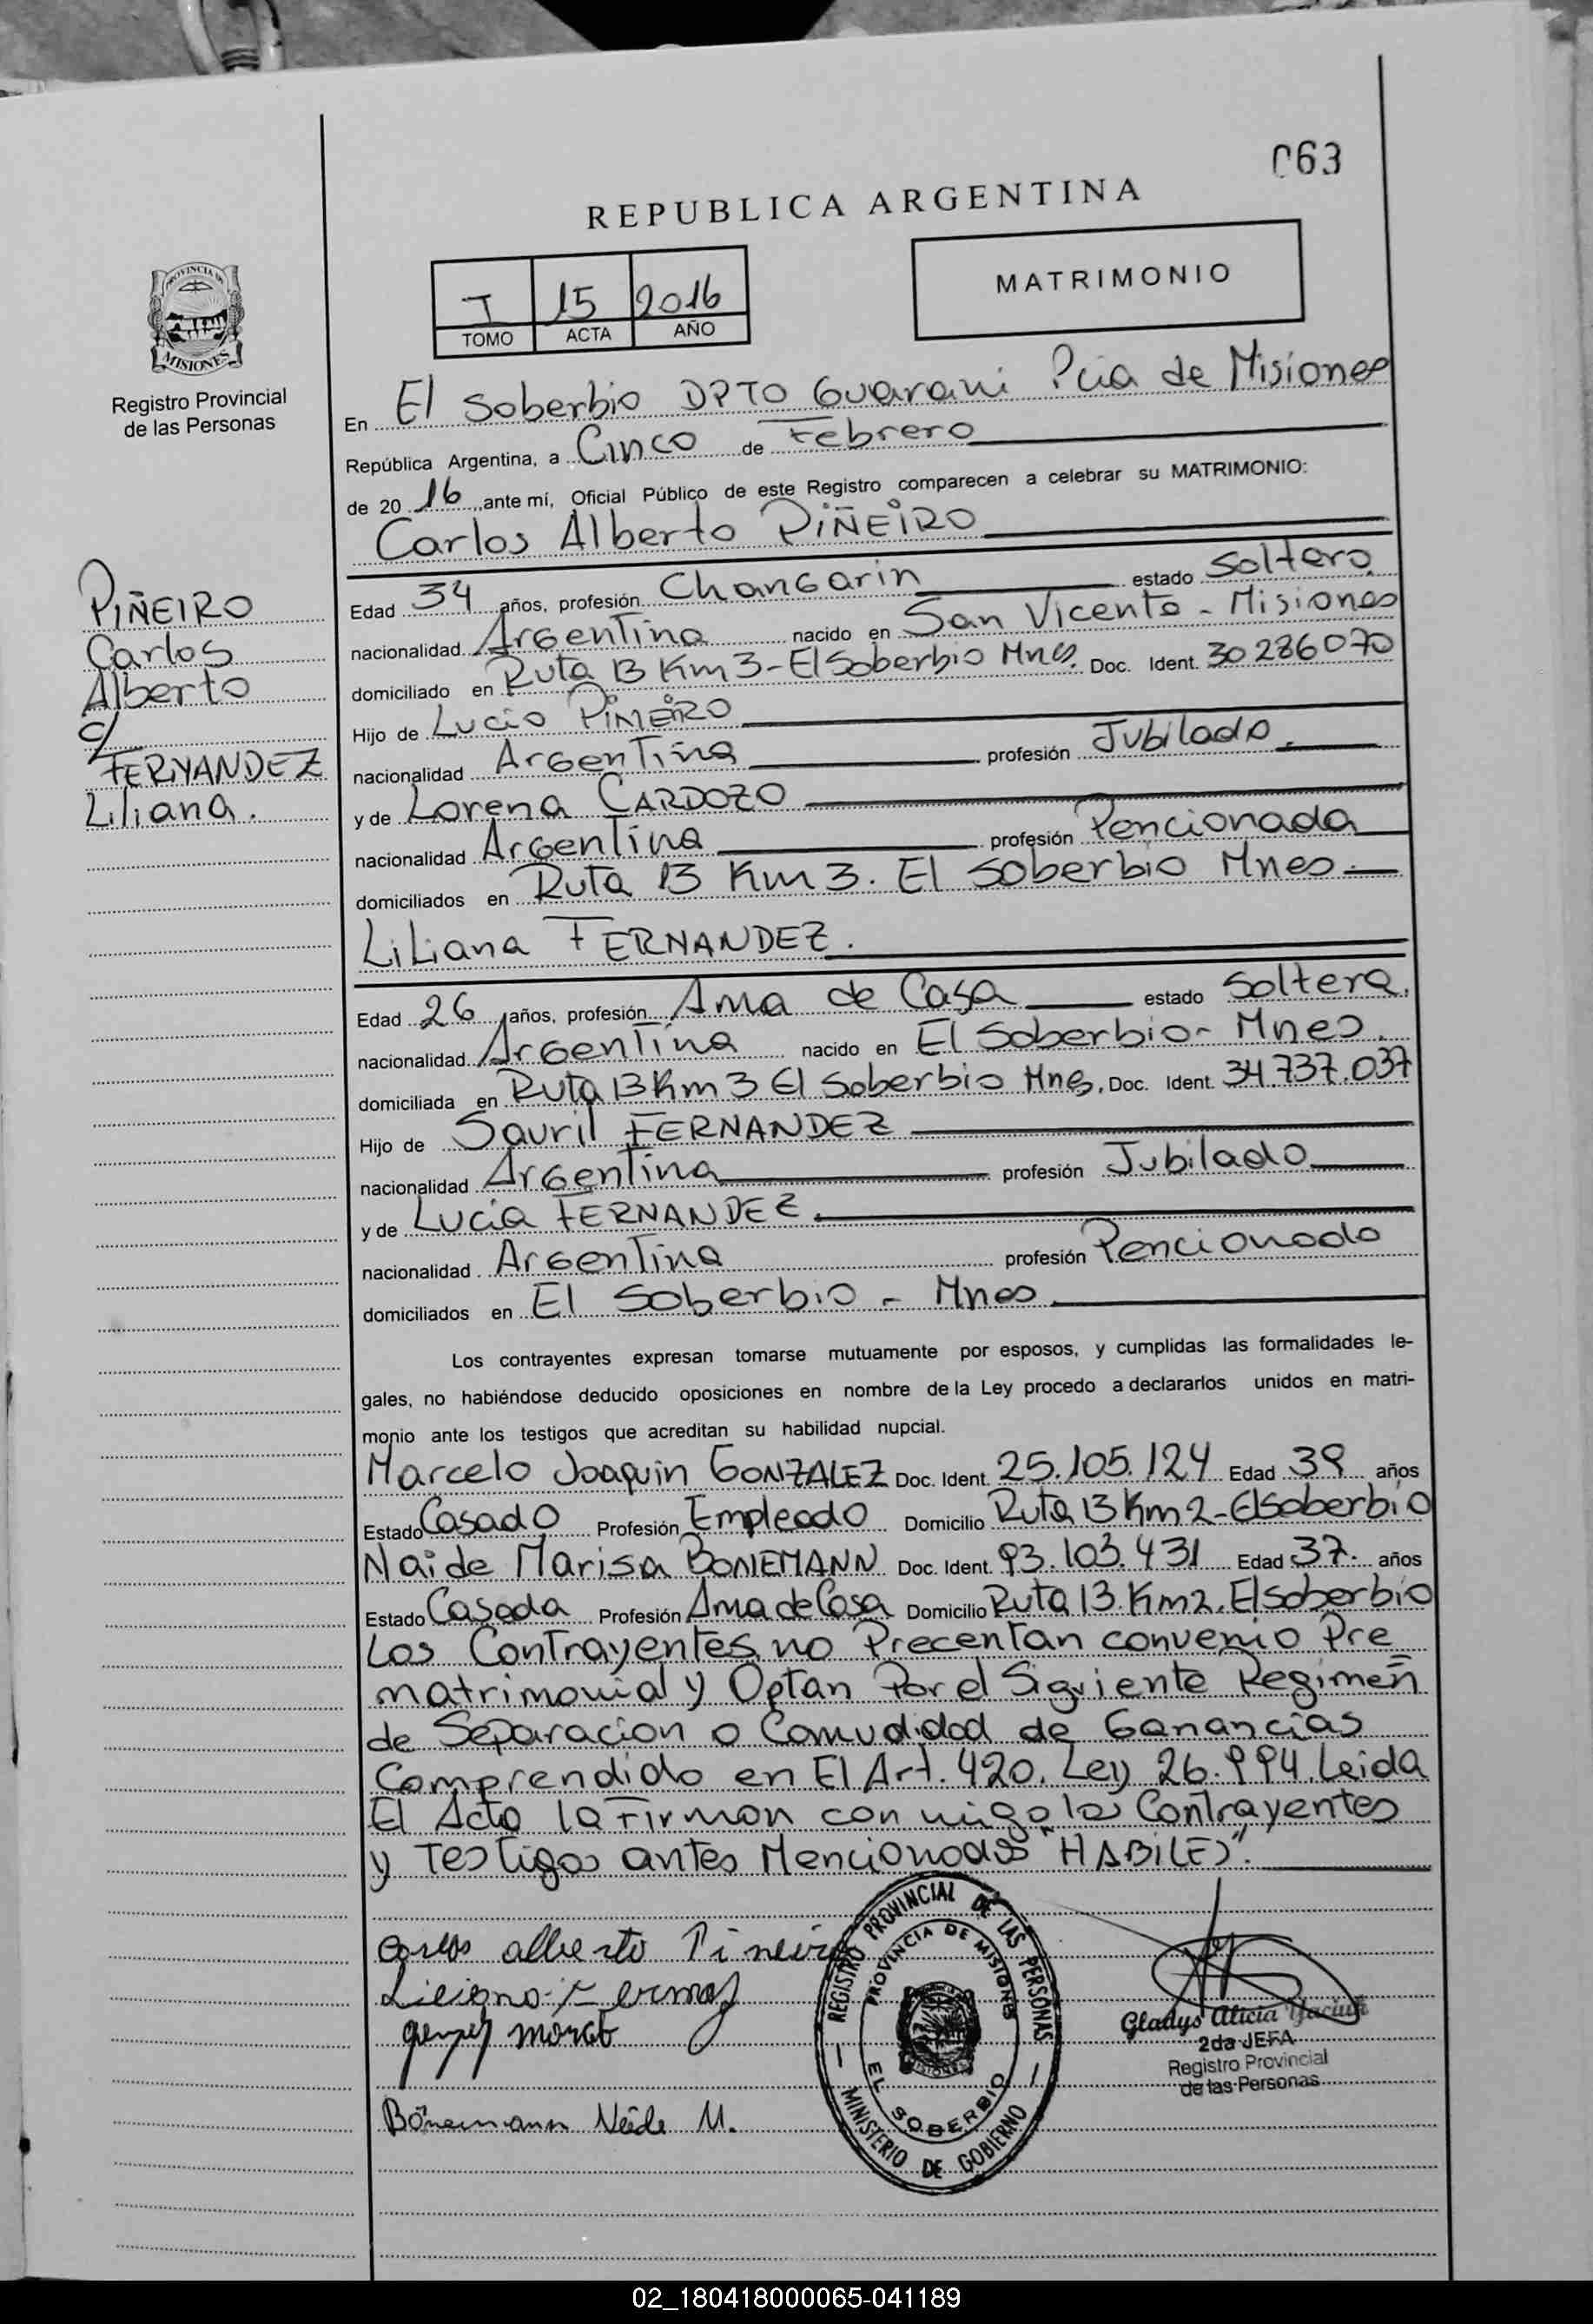 063
REPUBLICA ARGENTINA
T 15 2016
TOMO ACTA AÑO
MATRIMONIO
PROVINCIA DE
MISIONES
Registro Provincial
de las Personas
En El Soberbio DPTO Guarani Pcia de Misiones
República Argentina, a Cinco de Febrero
de 20 16 ante mí, Oficial Público de este Registro comparecen a celebrar su MATRIMONIO:
Carlos Alberto PIÑEIRO
PIÑEIRO
Carlos
Alberto
c/
FERNANDEZ
Liliana.
Edad 34 años, profesión Changarin estado Soltero
nacionalidad Argentina nacido en San Vicente - Misiones
domiciliado en Ruta 13 Km 3 - El Soberbio Mnes. Doc. Ident. 30286070
Hijo de Lucio PIÑEIRO
nacionalidad Argentina profesión Jubilado.
y de Lorena CARDOZO
nacionalidad Argentina profesión Pencionada
domiciliados en Ruta 13 Km 3. El Soberbio Mnes
Liliana FERNANDEZ.
Edad 26 años, profesión Ama de Casa estado Soltera.
nacionalidad Argentina nacido en El Soberbio - Mnes.
domiciliada en Ruta 13 Km 3 El Soberbio Mnes. Doc. Ident. 34.737.037
Hijo de Sauril FERNANDEZ
nacionalidad Argentina profesión Jubilado
y de Lucia FERNANDEZ.
nacionalidad Argentina profesión Pencionado
domiciliados en El Soberbio - Mnes.
Los contrayentes expresan tomarse mutuamente por esposos, y cumplidas las formalidades le-
gales, no habiéndose deducido oposiciones en nombre de la Ley procedo a declararlos unidos en matri-
monio ante los testigos que acreditan su habilidad nupcial.
Marcelo Joaquin GONZALEZ Doc. Ident. 25.105.124 Edad 39 años
Estado Casado Profesión Empleado Domicilio Ruta 13 Km 2 - El Soberbio
Naide Marisa BONEMANN Doc. Ident. 93.103.431 Edad 37. años
Estado Casada Profesión Ama de Casa Domicilio Ruta 13. Km 2. El Soberbio
Los Contrayentes no Precentan convenio Pre
matrimonial y Optan Por el Siguiente Regimen
de Separacion o Comudidad de Ganancias
Comprendido en El Art. 420. Ley 26.994. Leida
El Acta la Firman con migo los Contrayentes
y Testigos antes Mencionados "HABILES".
Carlos alberto Pineiro
REGISTRO PROVINCIAL DE LAS PERSONAS
PROVINCIA DE MISIONES
EL SOBERBIO
MINISTERIO DE GOBIERNO
Gladys Alicia
2da JEFA
Registro Provincial
de las Personas
Bönemann Neide M.
02_180418000065-041189